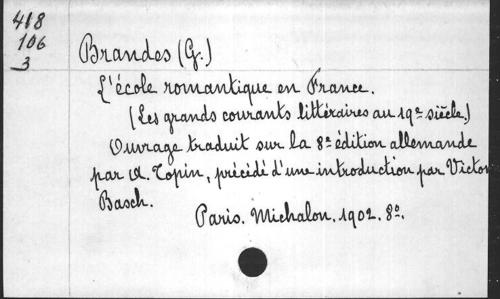 418
106
3
Brandes (G.)
L'école romantique en France.
(Les grands courants littéraires au 19e siècle.)
Ouvrage traduit sur la 8e édition allemande
par A. Topin, précédé d'une introduction par Victor
Basch.
Paris. Michalon. 1902. 8o.